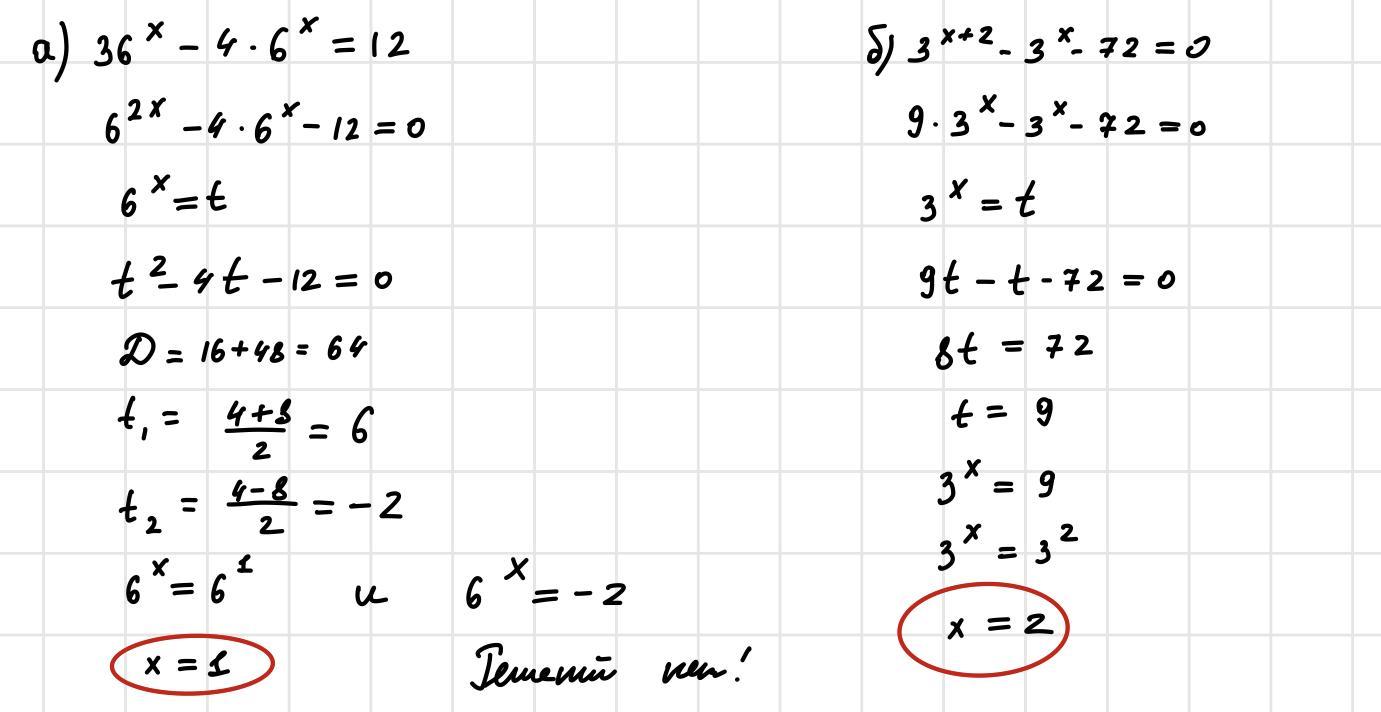 а) 36^x - 4 · 6^x = 12
6^2x - 4 · 6^x - 12 = 0
6^x = t
t^2 - 4t - 12 = 0
D = 16 + 48 = 64
t_1 = (4+8)/2 = 6
t_2 = (4-8)/2 = -2
6^x = 6^1 и 6^x = -2
x = 1 Решений нет!
б) 3^x+2 - 3^x - 72 = 0
9 · 3^x - 3^x - 72 = 0
3^x = t
9t - t - 72 = 0
8t = 72
t = 9
3^x = 9
3^x = 3^2
x = 2